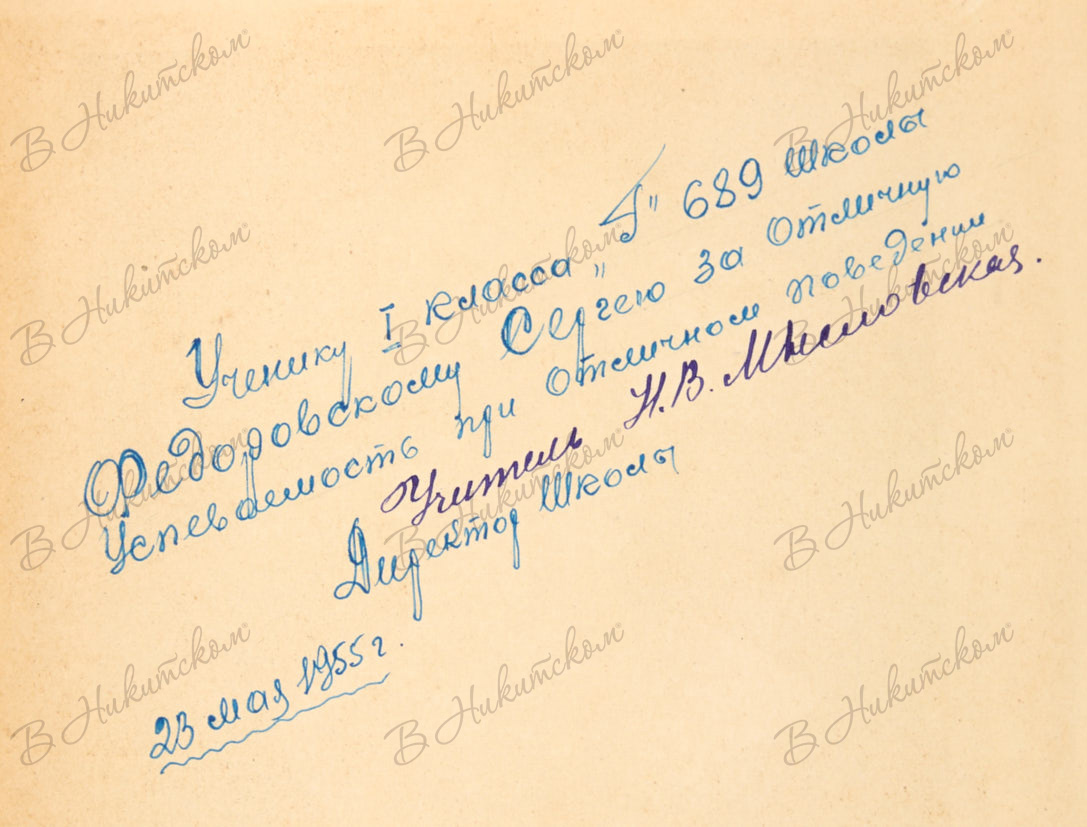 Ученику I класса „Г" 689 Школы
Федоровскому Сергею за Отличную
Успеваемость при отличном поведении
Учитель Н.В. Мысловская.
Директор Школы
23 мая 1955 г.
В Никитском
В Никитском
В Никитском
В Никитском
В Никитском
В Никитском
В Никитском
В Никитском
В Никитском
В Никитском
В Никитском
В Никитском